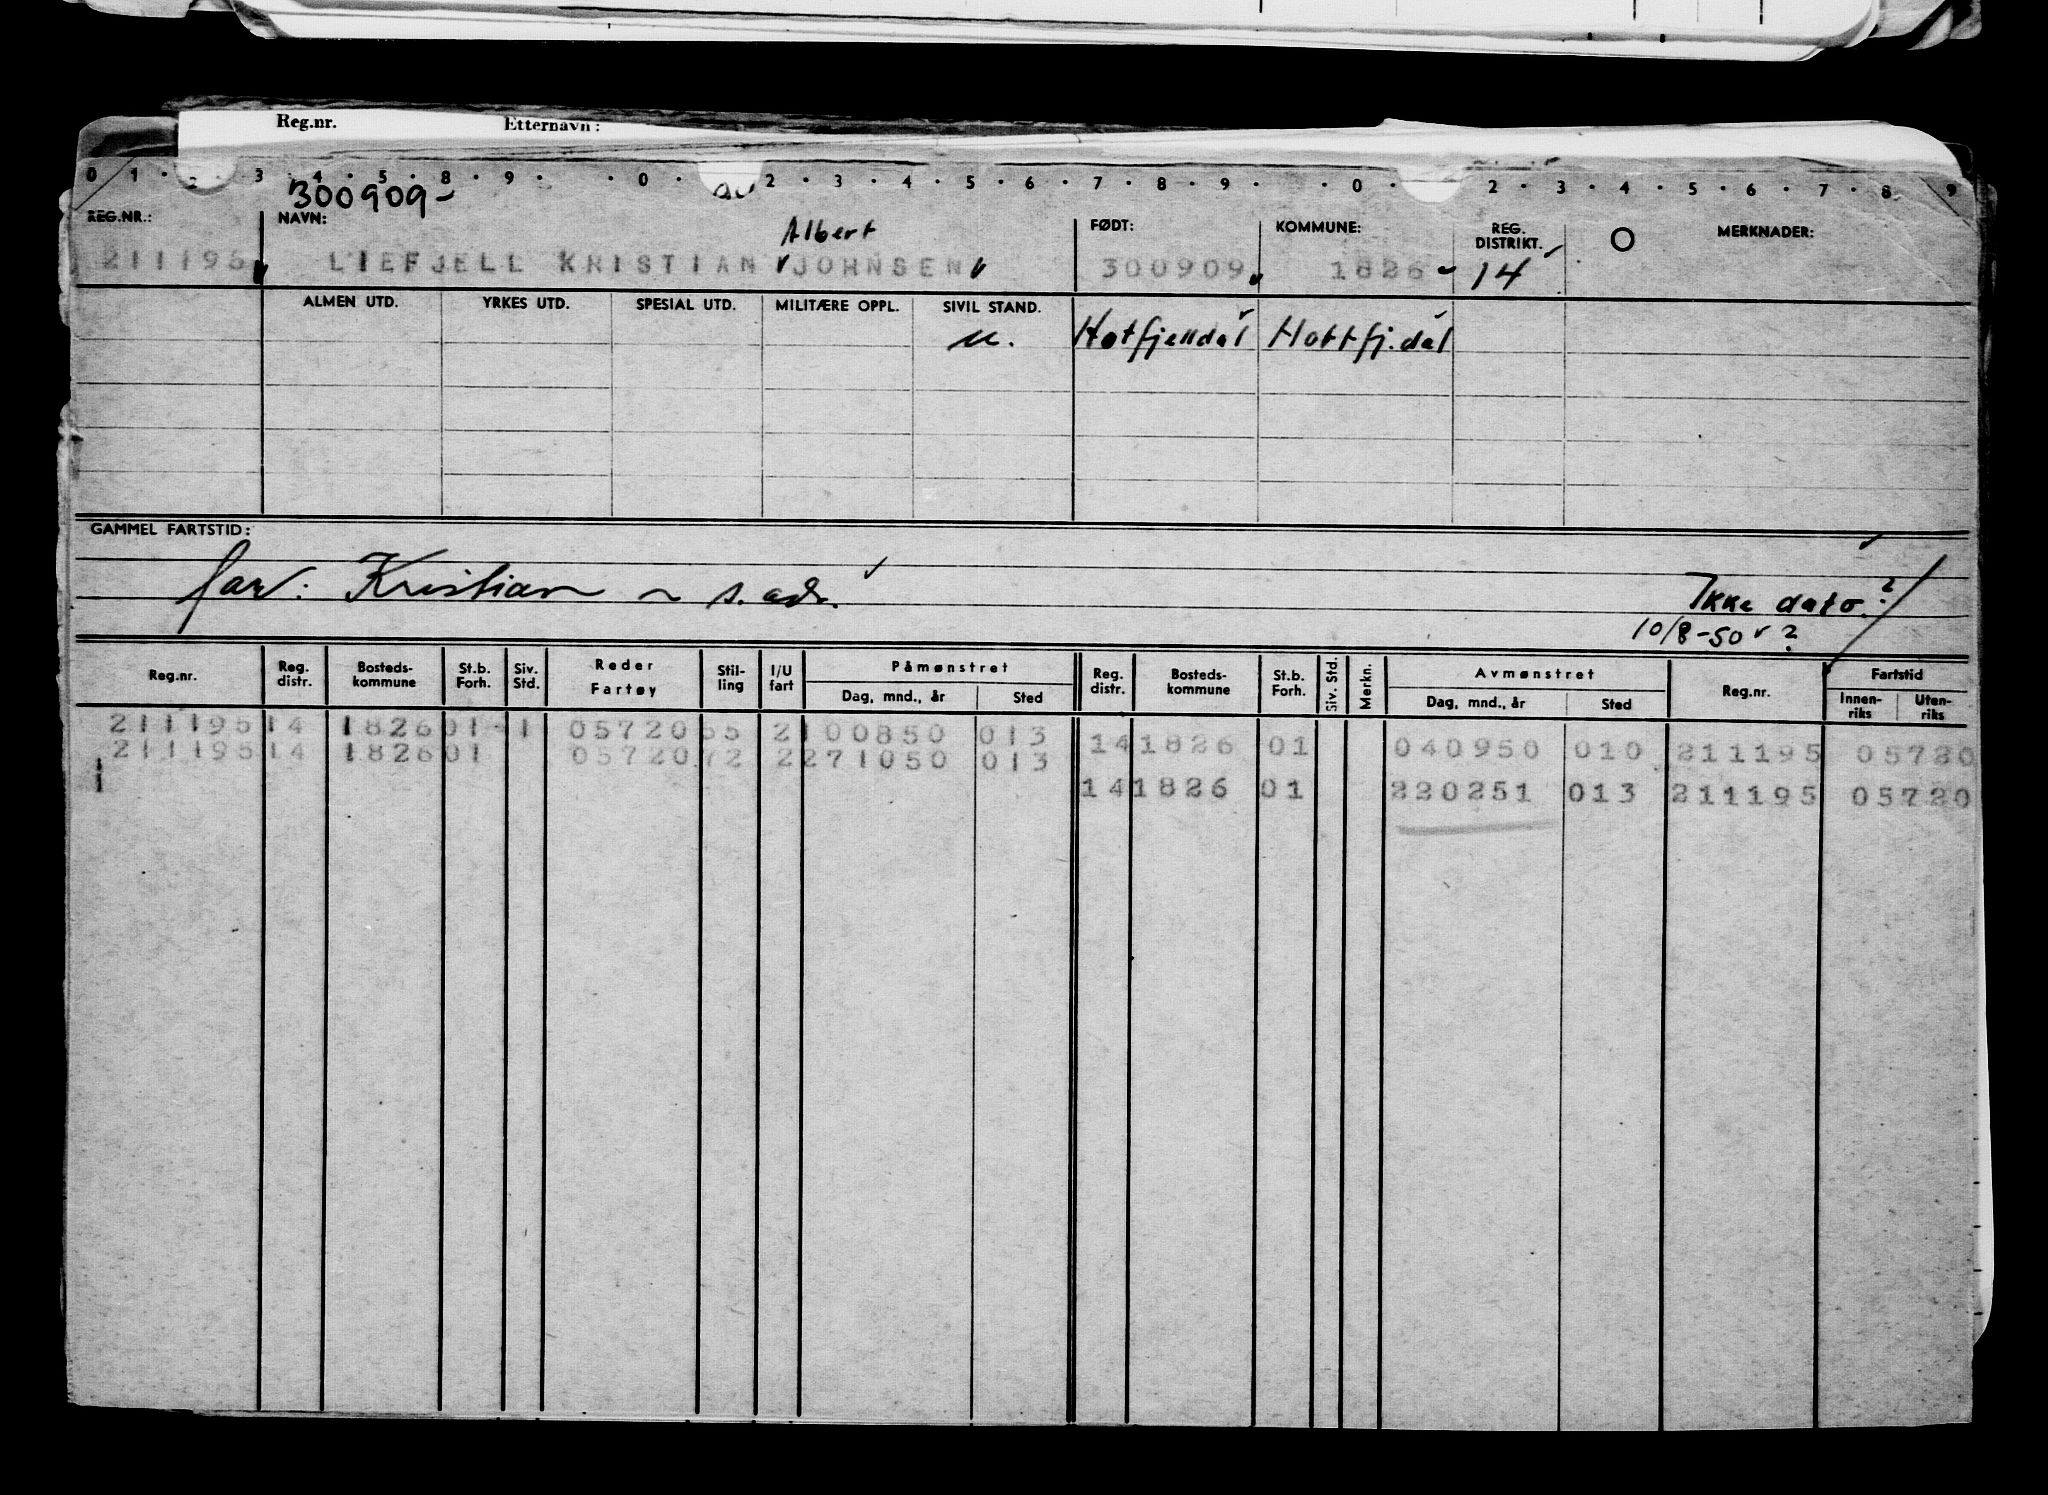 Reg.nr. Etternavn:
0 1 . 2 . 3 . 4 . 5 . 8 . 9 . . 0 . 2 . 3 . 4 . 5 . 6 . 7 . 8 . 9 . . 0 . 2 . 3 . 4 . 5 . 6 . 7 . 8 . 9
300909-
REG.NR.: NAVN: Albert FØDT: KOMMUNE: REG. DISTRIKT. O MERKNADER:
211195 LIEFJELL KRISTIAN JOHNSEN 300909 1826 14
ALMEN UTD. YRKES UTD. SPESIAL UTD. MILITÆRE OPPL. SIVIL STAND.
u. Hatfjelldal Hattfj.dal
GAMMEL FARTSTID:
far: Kristian ~ s. adr. Ikke dato?
10/8-50 ?
Reg.nr. Reg. distr. Bosteds-kommune St.b. Forh. Siv. Std. Reder Fartøy Stil-ling I/U fart Påmønstret Dag, mnd., år Sted Reg. distr. Bosteds-kommune St.b. Forh. Siv. Std. Merkn. Avmønstret Dag, mnd., år Sted Reg.nr. Fartstid Innen-riks Uten-riks
211195 14 1826 01 1 05720 55 2 100850 013 14 1826 01 040950 010 211195 05720
211195 14 1826 01 05720 72 2 271050 013
14 1826 01 220251 013 211195 05720